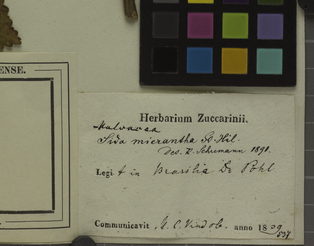 ENSE.
Herbarium Zuccarinii.
Malvacea
Sida micrantha St. Hil.
Des. K. Schumann 1891.
Legit in Brasilia Dr Pohl
Communicavit M. C. Vindob. anno 18